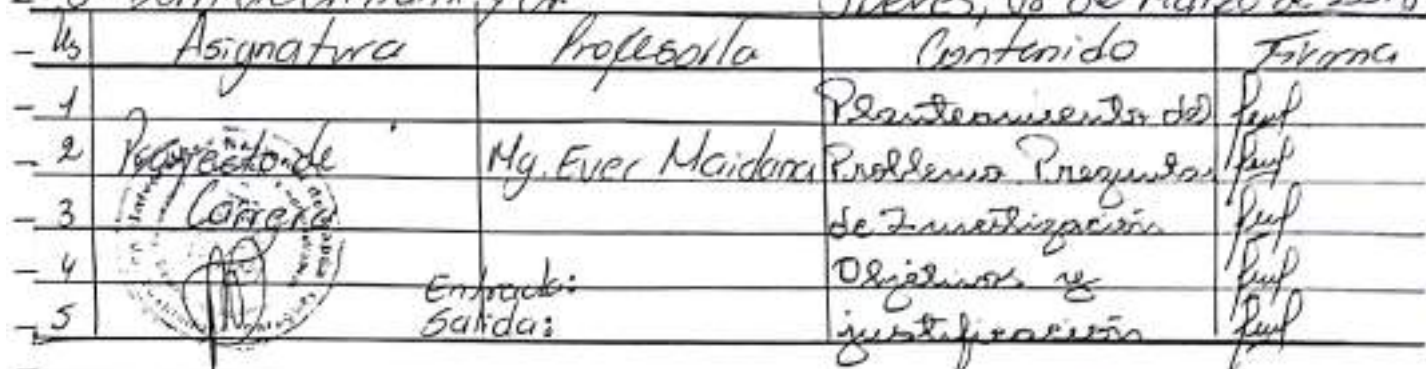 Jueves, de Marzo de
Hs Asignatura Profesor/a Contenido Firma
1 Planteamiento del
2 Proyecto de Mg. Ever Maidana Problema Preguntas
3 Carrera de Investigación
4 Entrada: Objetivos y
5 Salida: justificación